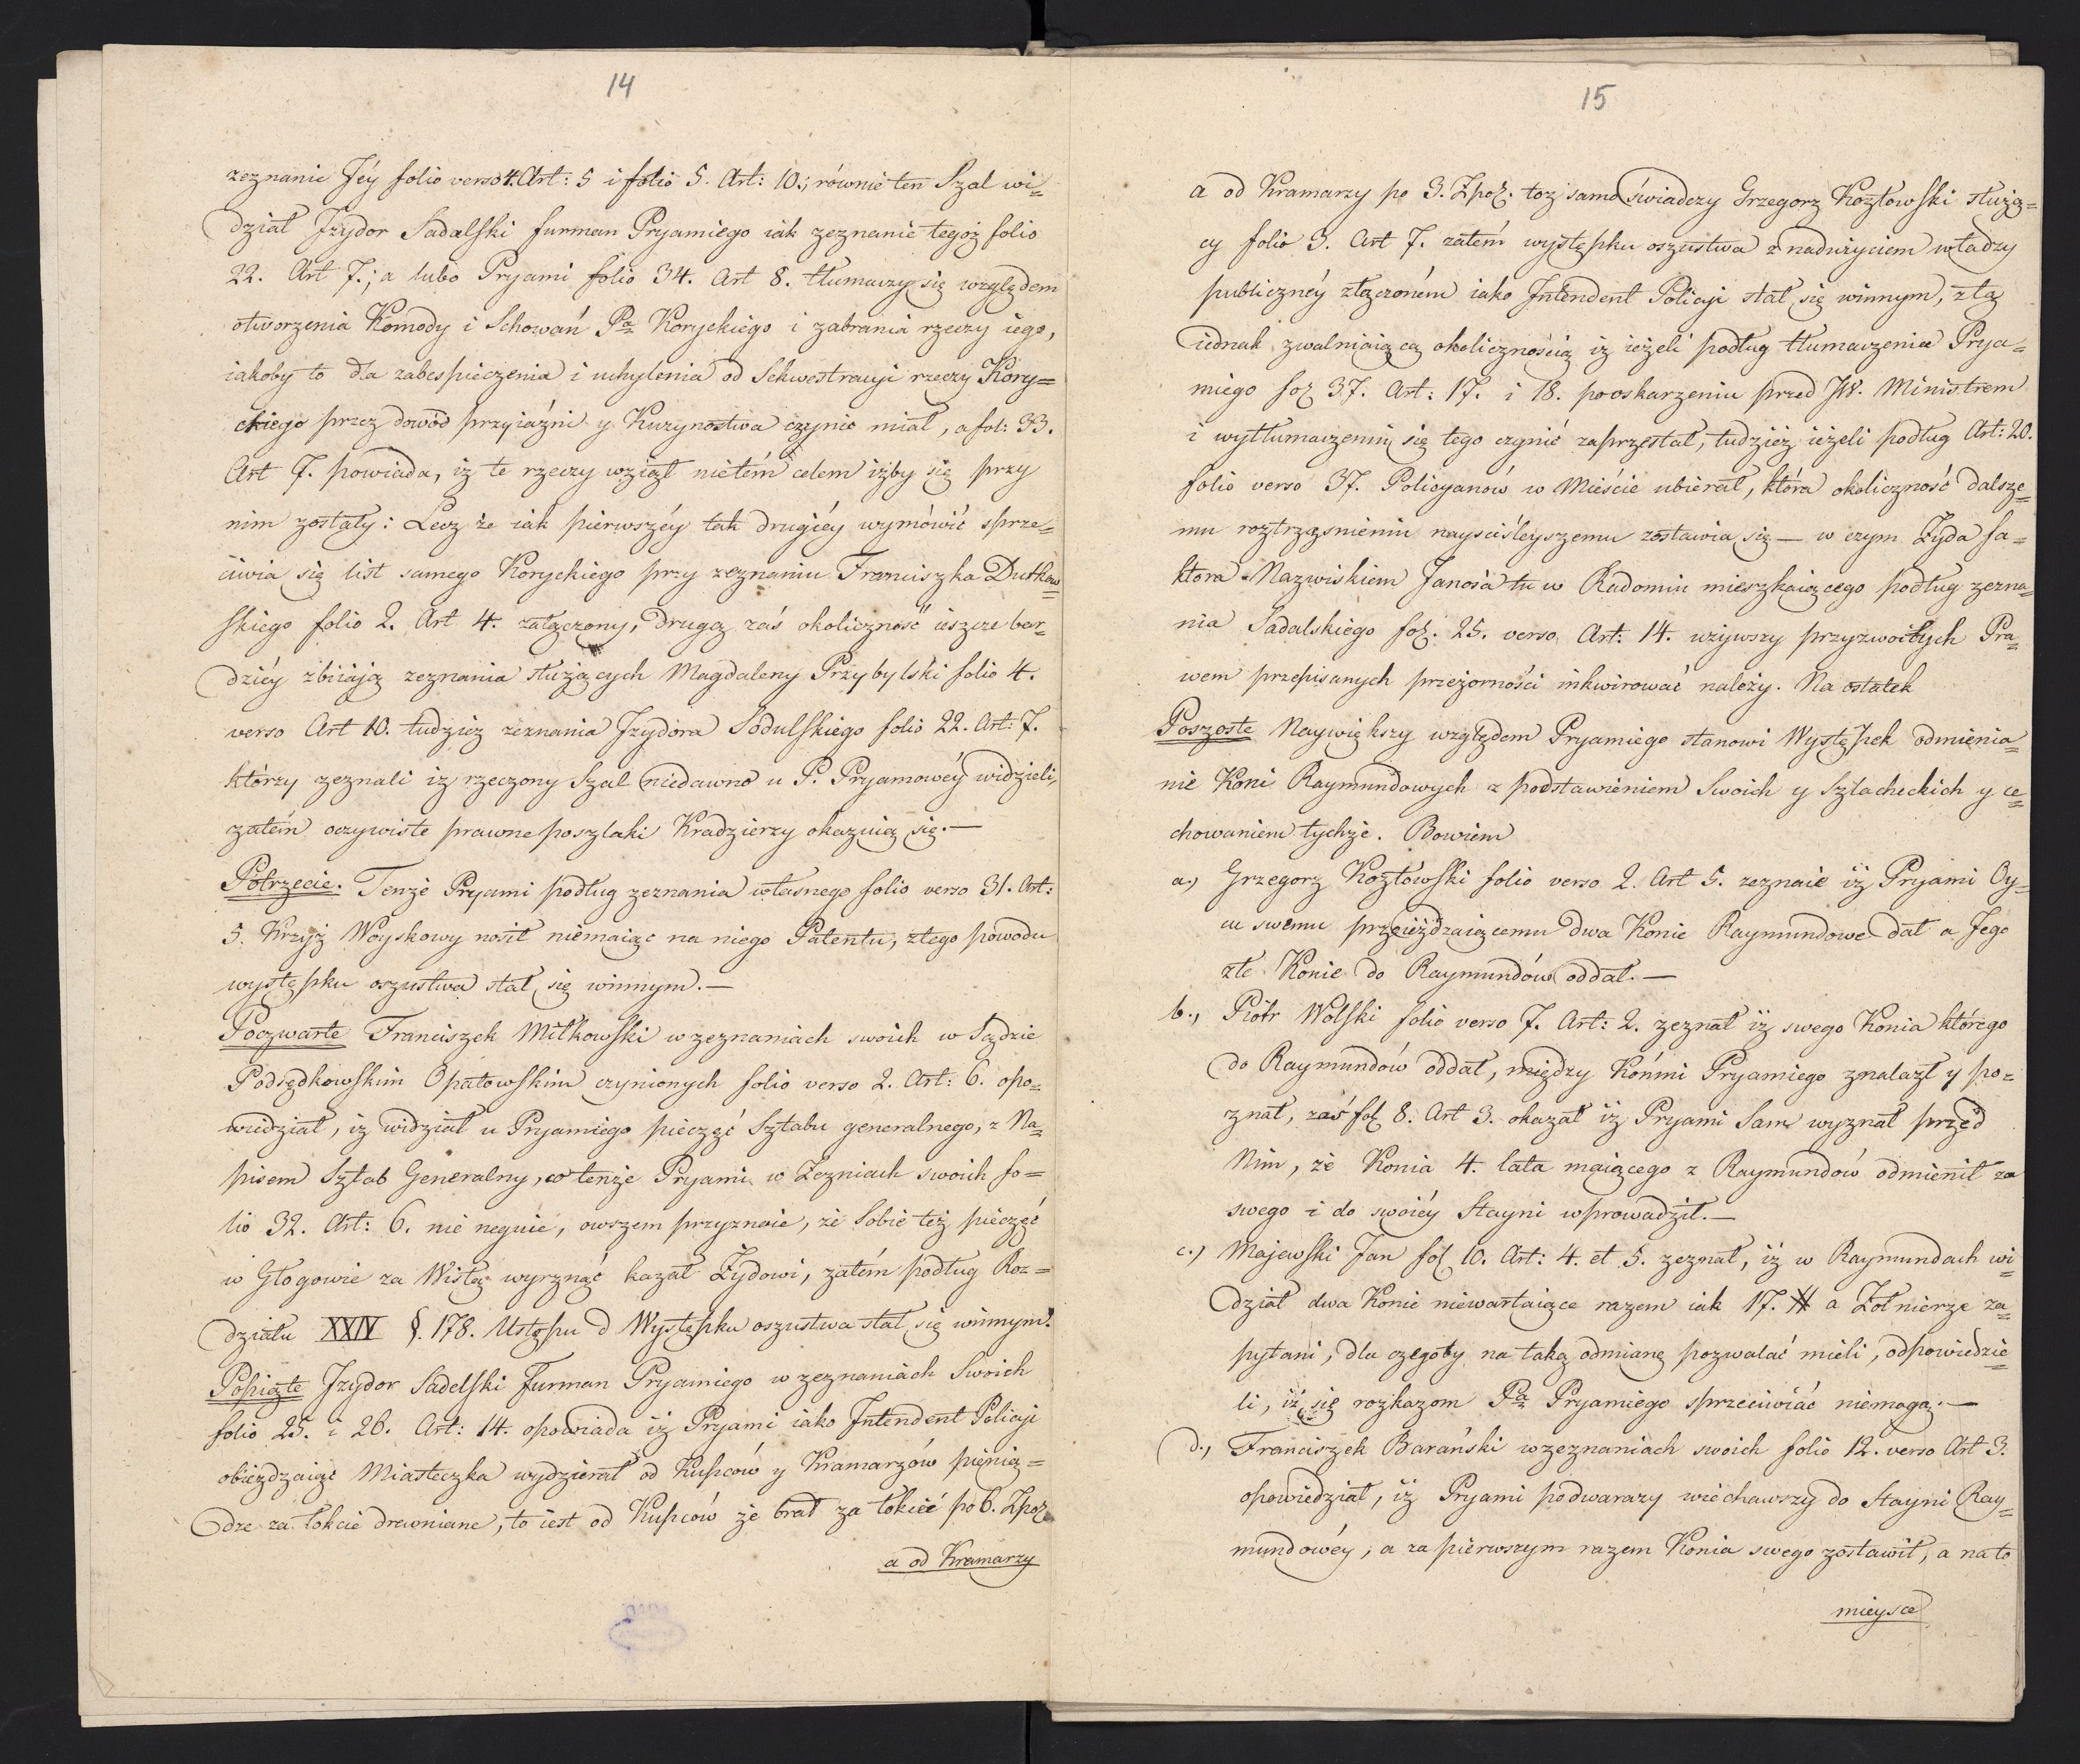 14
zeznanie Jéy folio verso 4. Art: 5 i folio 5. Art: 10.; równie ten Szal wi=
dział Jzydor Sadalski furman Pryamiego iak zeznanie tegoż folio
22. Art 7.; a lubo Pryami folio 34. Art 8. tłumaczy się względem
otworzenia Komody i Schowań Pa Koryckiego i zabrania rzeczy iego,
iakoby to dla zabespieczenia i uchylenia od Sekwestracyi rzeczy Kory=
ckiego przez dowód przyiaźni y Kuzynostwa czynić miał, a fol: 33.
Art 7. powiada, iż te rzeczy wziął nie tém celem iżby się przy
nim zostały: Lecz że iak pierwszéy tak drugiéy wymówić sprze=
ciwia się list samego Koryckiego przy zeznaniu Franciszka Dutkow=
skiego folio 2. Art 4. załączony, drugą zaś okoliczność ieszcze bar=
dziéy zbiiają zeznania służących Magdaleny Przybylski folio 4.
verso Art 10. tudzież zeznania Jzydora Sodulskiego folio 22. Art: 7.
którzy zeznali iż rzeczony Szal niedawno u P. Pryamowéy widzieli,
zatém oczywiste prawne poszlaki Kradzierzy okazuią się.—
Potrzecie. Tenże Pryami podług zeznania własnego folio verso 31. Art:
5. Krzyż Woyskowy nosił niemaiąc na niego Patentu, z tego powodu
występku oszustwa stał się winnym.—
Poczwarte Franciszek Miłkowski w zeznaniach swoich w Sądzie
Podsędkowskim Opatowskim czynionych folio verso 2. Art: 6. opo=
wiedział, iż widział u Pryamiego pieczęć Sztabu generalnego, z Na=
pisem Sztab Generalny, co tenże Pryami w Zezniach swoich fo=
lio 32. Art: 6. nie neguie, owszem przyznaie, że Sobie też pieczęć
w Głogowie za Wisłą wyrznąć kazał Żydowi, zatém podług Roz=
działu XXIV §. 178. Ustępu d Występku oszustwa stał się winnym.
Popiąte Jzydor Sadelski Furman Pryamiego w zeznaniach Swoich
folio 25. i 26. Art: 14. opowiada iż Pryami iako Jntendent Policyi
obieżdzaiąc Miasteczka wydzierał od Kupców y Kramarzów pienią=
dze za łokcie drewniane, to iest od Kupców że brał za łokieć po 6. Zpol
a od Kramarzy
15
a od Kramarzy po 3. Zpol. toż samo świadczy Grzegorz Kozłowski służą=
cy folio 3. Art 7. zatém występku oszustwa z nadużyciem władzy
publicznéy złączoném iako Jntendent Policyi stał się winnym, z tą
iednak zwalniaiącą okolicznością iż ieżeli podług tłumaczenia Prya=
miego fol 37. Art: 17. i 18. po oskarzeniu przed JW. Ministrem
i wytłumaczeniu się tego czynić zaprzestał, tudzież ieżeli podług Art: 20.
folio verso 37. Policyanów w Mieście ubierał, która okoliczność dalsze=
mu roztrząsnieniu nayściśleyszemu zostawia się — w czym Żyda fa=
ktora Nazwiskiem Janosia tu w Radomiu mieszkaiącego podług zezna=
nia Sadalskiego fol. 25. verso Art: 14. używszy przyzwoitych Pra=
wem przepisanych przeżorności inkwirować należy. Na ostatek
Poszoste Naywiększy względem Pryamiego stanowi Występek odmienia=
nie Koni Raymundowych z podstawieniem Swoich y Szlacheckich y ce=
chowaniem tychże. Bowiem
a.) Grzegorz Kozłówski folio verso 2. Art 5. zeznaie iż Pryami Oy=
cu swemu przeieżdzaiącemu dwa Konie Raymundowe dał a Jego
złe Konie do Raymundów oddał.—
b.) Piotr Wolski folio verso 7. Art: 2. zeznał iż swego Konia którego
do Raymundów oddał, między Końmi Pryamiego znalazł y po=
znał, zaś fol 8. Art 3. okazał iż Pryami Sam wyznał przed
Nim, że Konia 4. lata maiącego z Raymundów odmienił za
swego i do swoiéy Stayni wprowadził.—
c.) Majewski Jan fol 10. Art: 4. et 5. zeznał, iż w Raymundach wi=
dział dwa Konie niewartaiące razem iak 17. # a Żołnierze za=
pytani, dla czegoby na taką odmianę pozwalać mieli, odpowiedzie=
li, iż się rozkazom Pa Pryamiego sprzeciwiać niemogą.—
d.) Franciszek Barański w zeznaniach swoich folio 12. verso Art 3.
opowiedział, iż Pryami podwarazy wiechawszy do Stayni Ray=
mundowéy, a za pierwszym razem Konia swego zostawił, a na to
mieysce